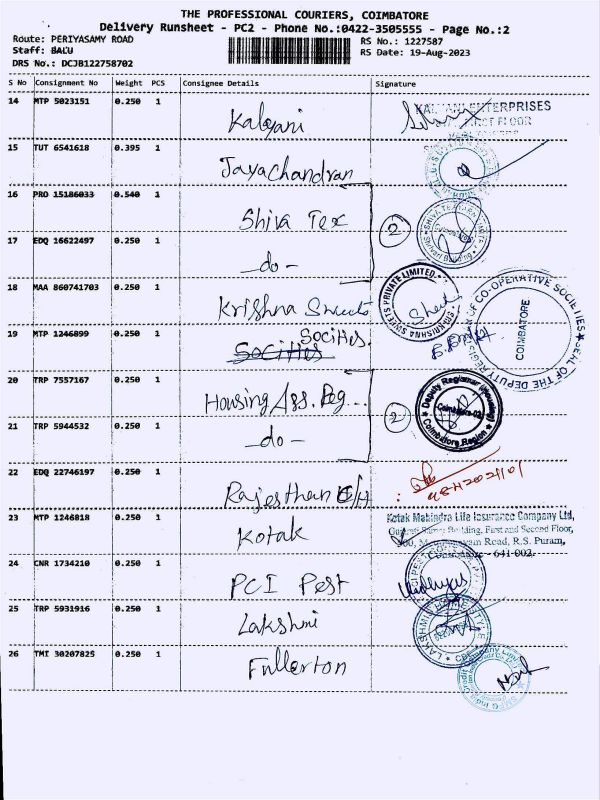 THE PROFESSIONAL COURIERS, COIMBATORE
Delivery Runsheet - PC2 - Phone No.:0422-3505555 - Page No.:2
Route: PERIYASAMY ROAD
RS No.: 1227587
Staff: BALU
RS Date: 19-Aug-2023
DRS No.: DCJB122758702
S No Consignment No Weight PCS Consignee Details Signature
14 MTP 5023151 0.250 1 Kalyani
KALYANI ENTERPRISES
FIRST FLOOR
15 TUT 6541618 0.395 1 Jayachandran
16 PRO 15186033 0.540 1 Shiva Tex
2
17 EDQ 16622497 0.250 1 -do-
18 MAA 860741703 0.250 1 Krishna Sweets
SRI KRISHNA SWEETS PRIVATE LIMITED
SEAL OF THE DEPUTY REGISTRAR OF CO-OPERATIVE SOCIETIES
COIMBATORE
19 MTP 1246899 0.250 1 Socities.
Socities
20 TRP 7557167 0.250 1 Housing Ass. Reg...
2
Deputy Registrar (Housing)
Coimbatore-02
Coimbatore Region
21 TRP 5944532 0.250 1 -do-
22 EDQ 22746197 0.250 1 Rajesthan
23 MTP 1246818 0.250 1 Kotak
Kotak Mahindra Life Insurance Company Ltd,
Building, First and Second Floor,
Road, R.S. Puram,
Coimbatore - 641 002.
24 CNR 1734210 0.250 1 PCI Pest
25 TRP 5931916 0.250 1 Lakshmi
LAKSHMI
26 TMI 30207825 0.250 1 Fullerton